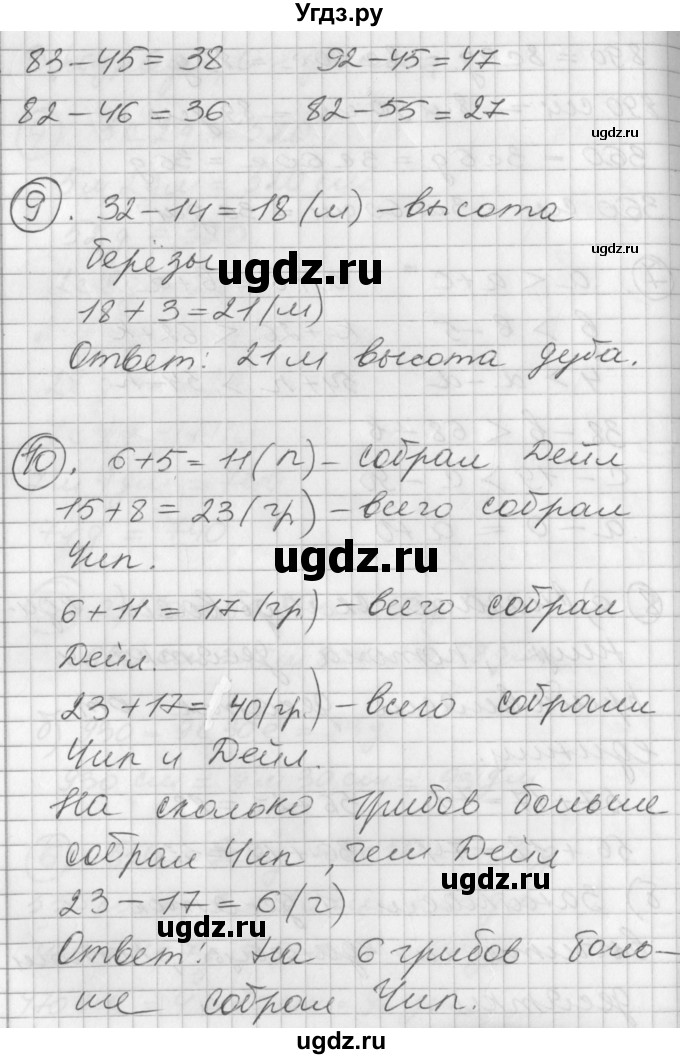 Угдз.ру
83-45= 38 92-45=47
82-46 = 36 82-55=27
ugdz.ru
9. 32-14=18(м) -высота
ugdz.ru
берёзы
ugdz.ru
18+3=21(м)
Ответ: 21м высота дуба.
10. 6+5=11(п)- собрал Дейл
15+8=23(гр)-всего собрал
ugdz.ru
Чип.
ugdz.ru
6+11=17(гр) -всего собрал
Дейл.
23+17= 40(гр)-всего собрали
Чип и Дейл.
На сколько грибов больше
собрал Чип, чем Дейл
ugdz.ru
23-17=6(г)
ugdz.ru
Ответ: на 6 грибов боль-
ше собрал Чип.
ugdz.ru